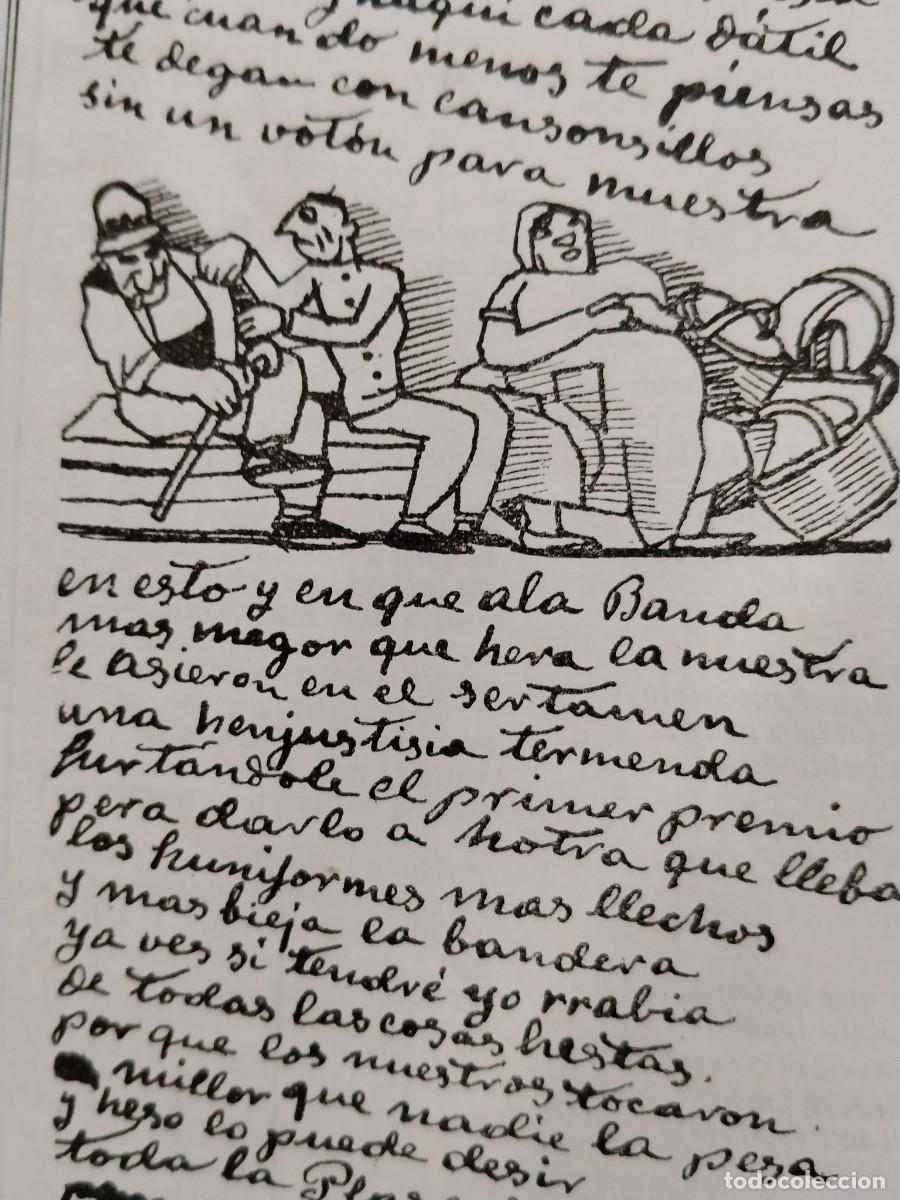 y haquí cada dátil
que cuando menos te piensas
te degan con cansonsillos
sin un votón para muestra
en esto y en que ala Banda
mas megor que hera la nuestra
le asieron en el sertamen
una henjustisia termenda
hurtándole el primer premio
pera darlo a hotra que lleba
los huniformes mas llechos
y mas bieja la bandera
ya ves si tendré yo rrabia
de todas las cosas hestas.
por que los nuestros tocaron
millor que nadie la pesa
y heso lo puede desir
toda la
todocoleccion